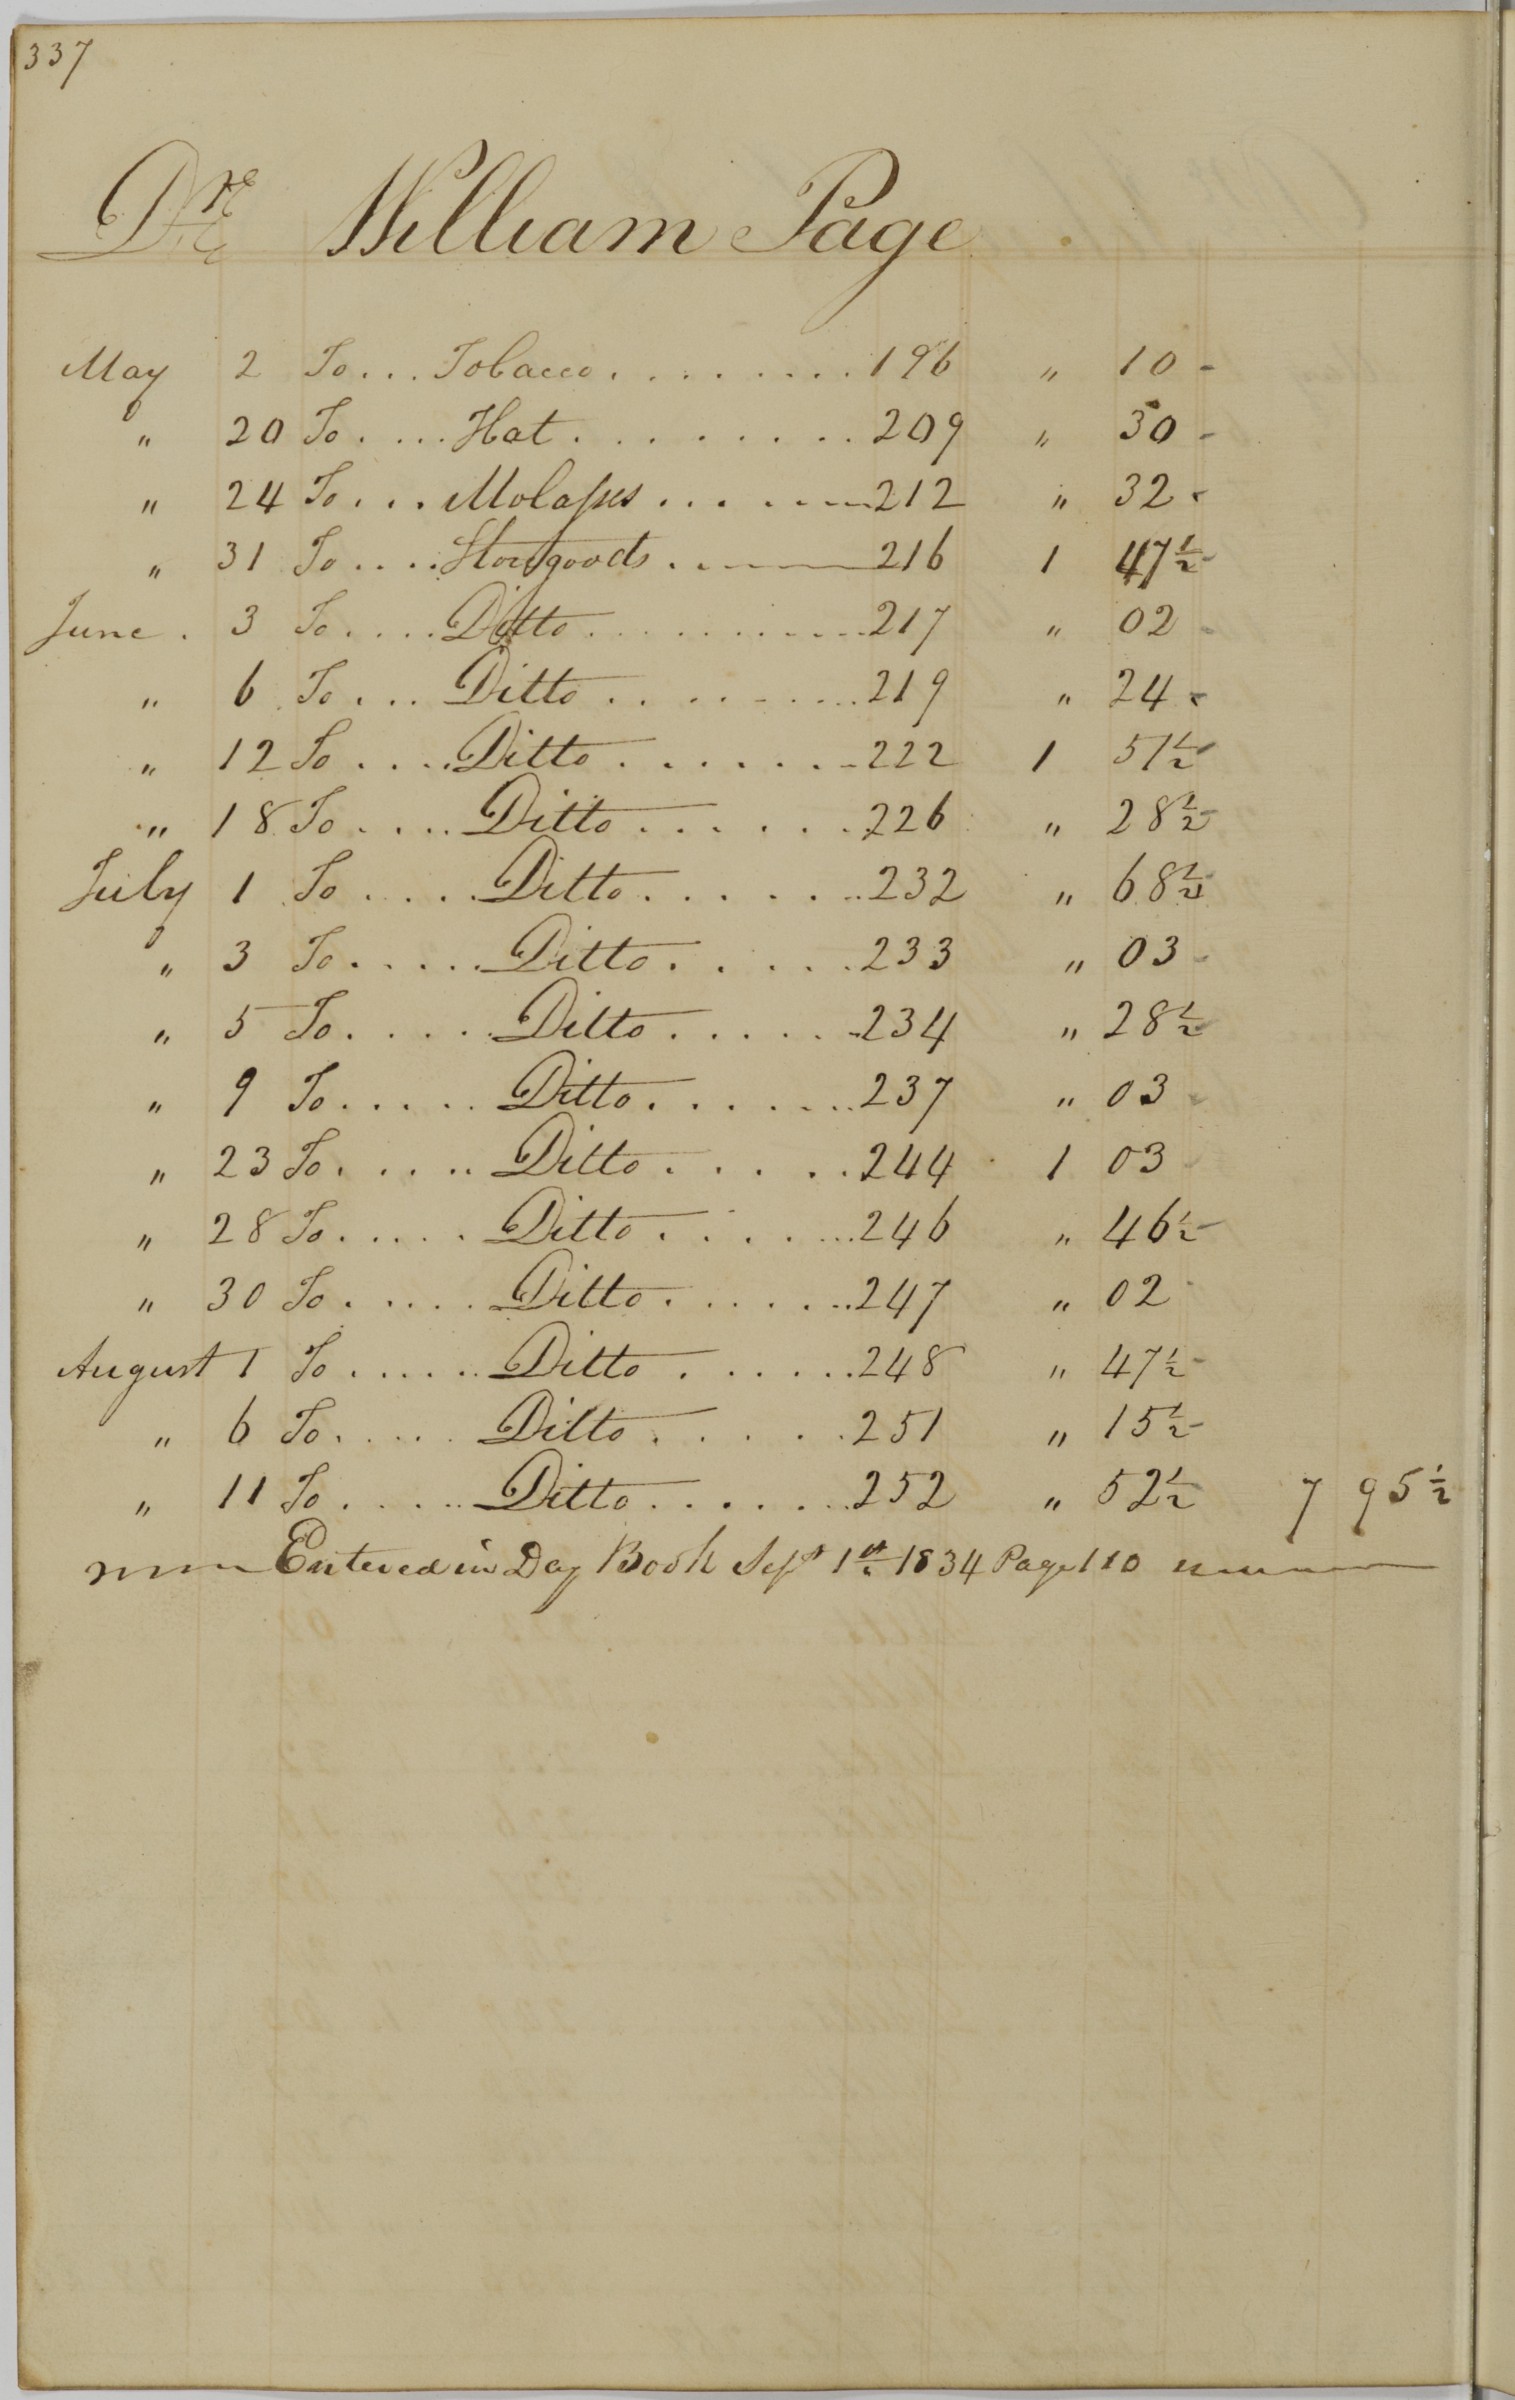 337
Dr William Page
May 2 To... Tobacco......... 196 " 10 -
" 20 To.... Hat......... 209 " 30 -
" 24 To... Molaſses....... 212 " 32 -
" 31 To.... Storegoods....... 216 1 47½ -
June . 3 To.... Ditto......... 217 " 02 -
" 6 To... Ditto......... 219 " 24 -
" 12 To.... Ditto....... 222 1 51½ -
" 18 To.... Ditto....... 226 " 28½ -
July 1 To..... Ditto....... 232 " 68½ -
" 3 To..... Ditto...... 233 " 03 -
" 5 To..... Ditto...... 234 " 28½ -
" 9 To..... Ditto....... 237 " 03 -
" 23 To..... Ditto...... 244 1 03 -
" 28 To..... Ditto....... 246 " 46½ -
" 30 To..... Ditto....... 247 " 02 -
August 1 To...... Ditto....... 248 " 47½ -
" 6 To..... Ditto...... 251 " 15½ -
" 11 To..... Ditto....... 252 " 52½ 7 95½
Entered in Day Book Sept 1st 1834 Page 110